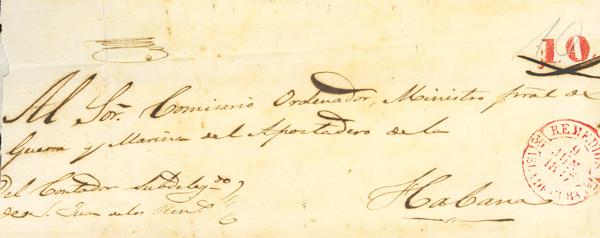 10.
Al Sor. Comisario Ordenador, Ministro pral de
Guerra y Marina del Apostadero de la
Habana
Del Contador Subdeleg.do
de S. Juan de los Rem.s
REMEDIOS
9
ISLA DE CUBA